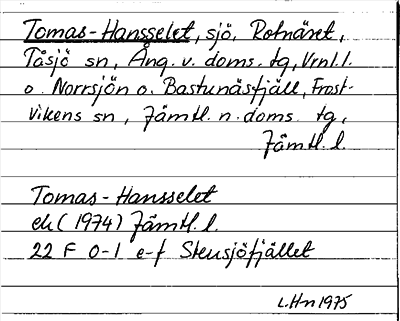 Tomas-Hansselet, sjö, Rotnäset,
Tåsjö sn, Ång. v. doms. tg, Vrnl.l.
o. Norrsjön o. Bastunäsfjäll, Frost-
vikens sn, Jämtl. n. doms. tg,
Jämtl. l.
Tomas-Hansselet
ek (1974) Jämtl. l.
22 F 0-1 e-f Stensjöfjället
L.Hn 1975